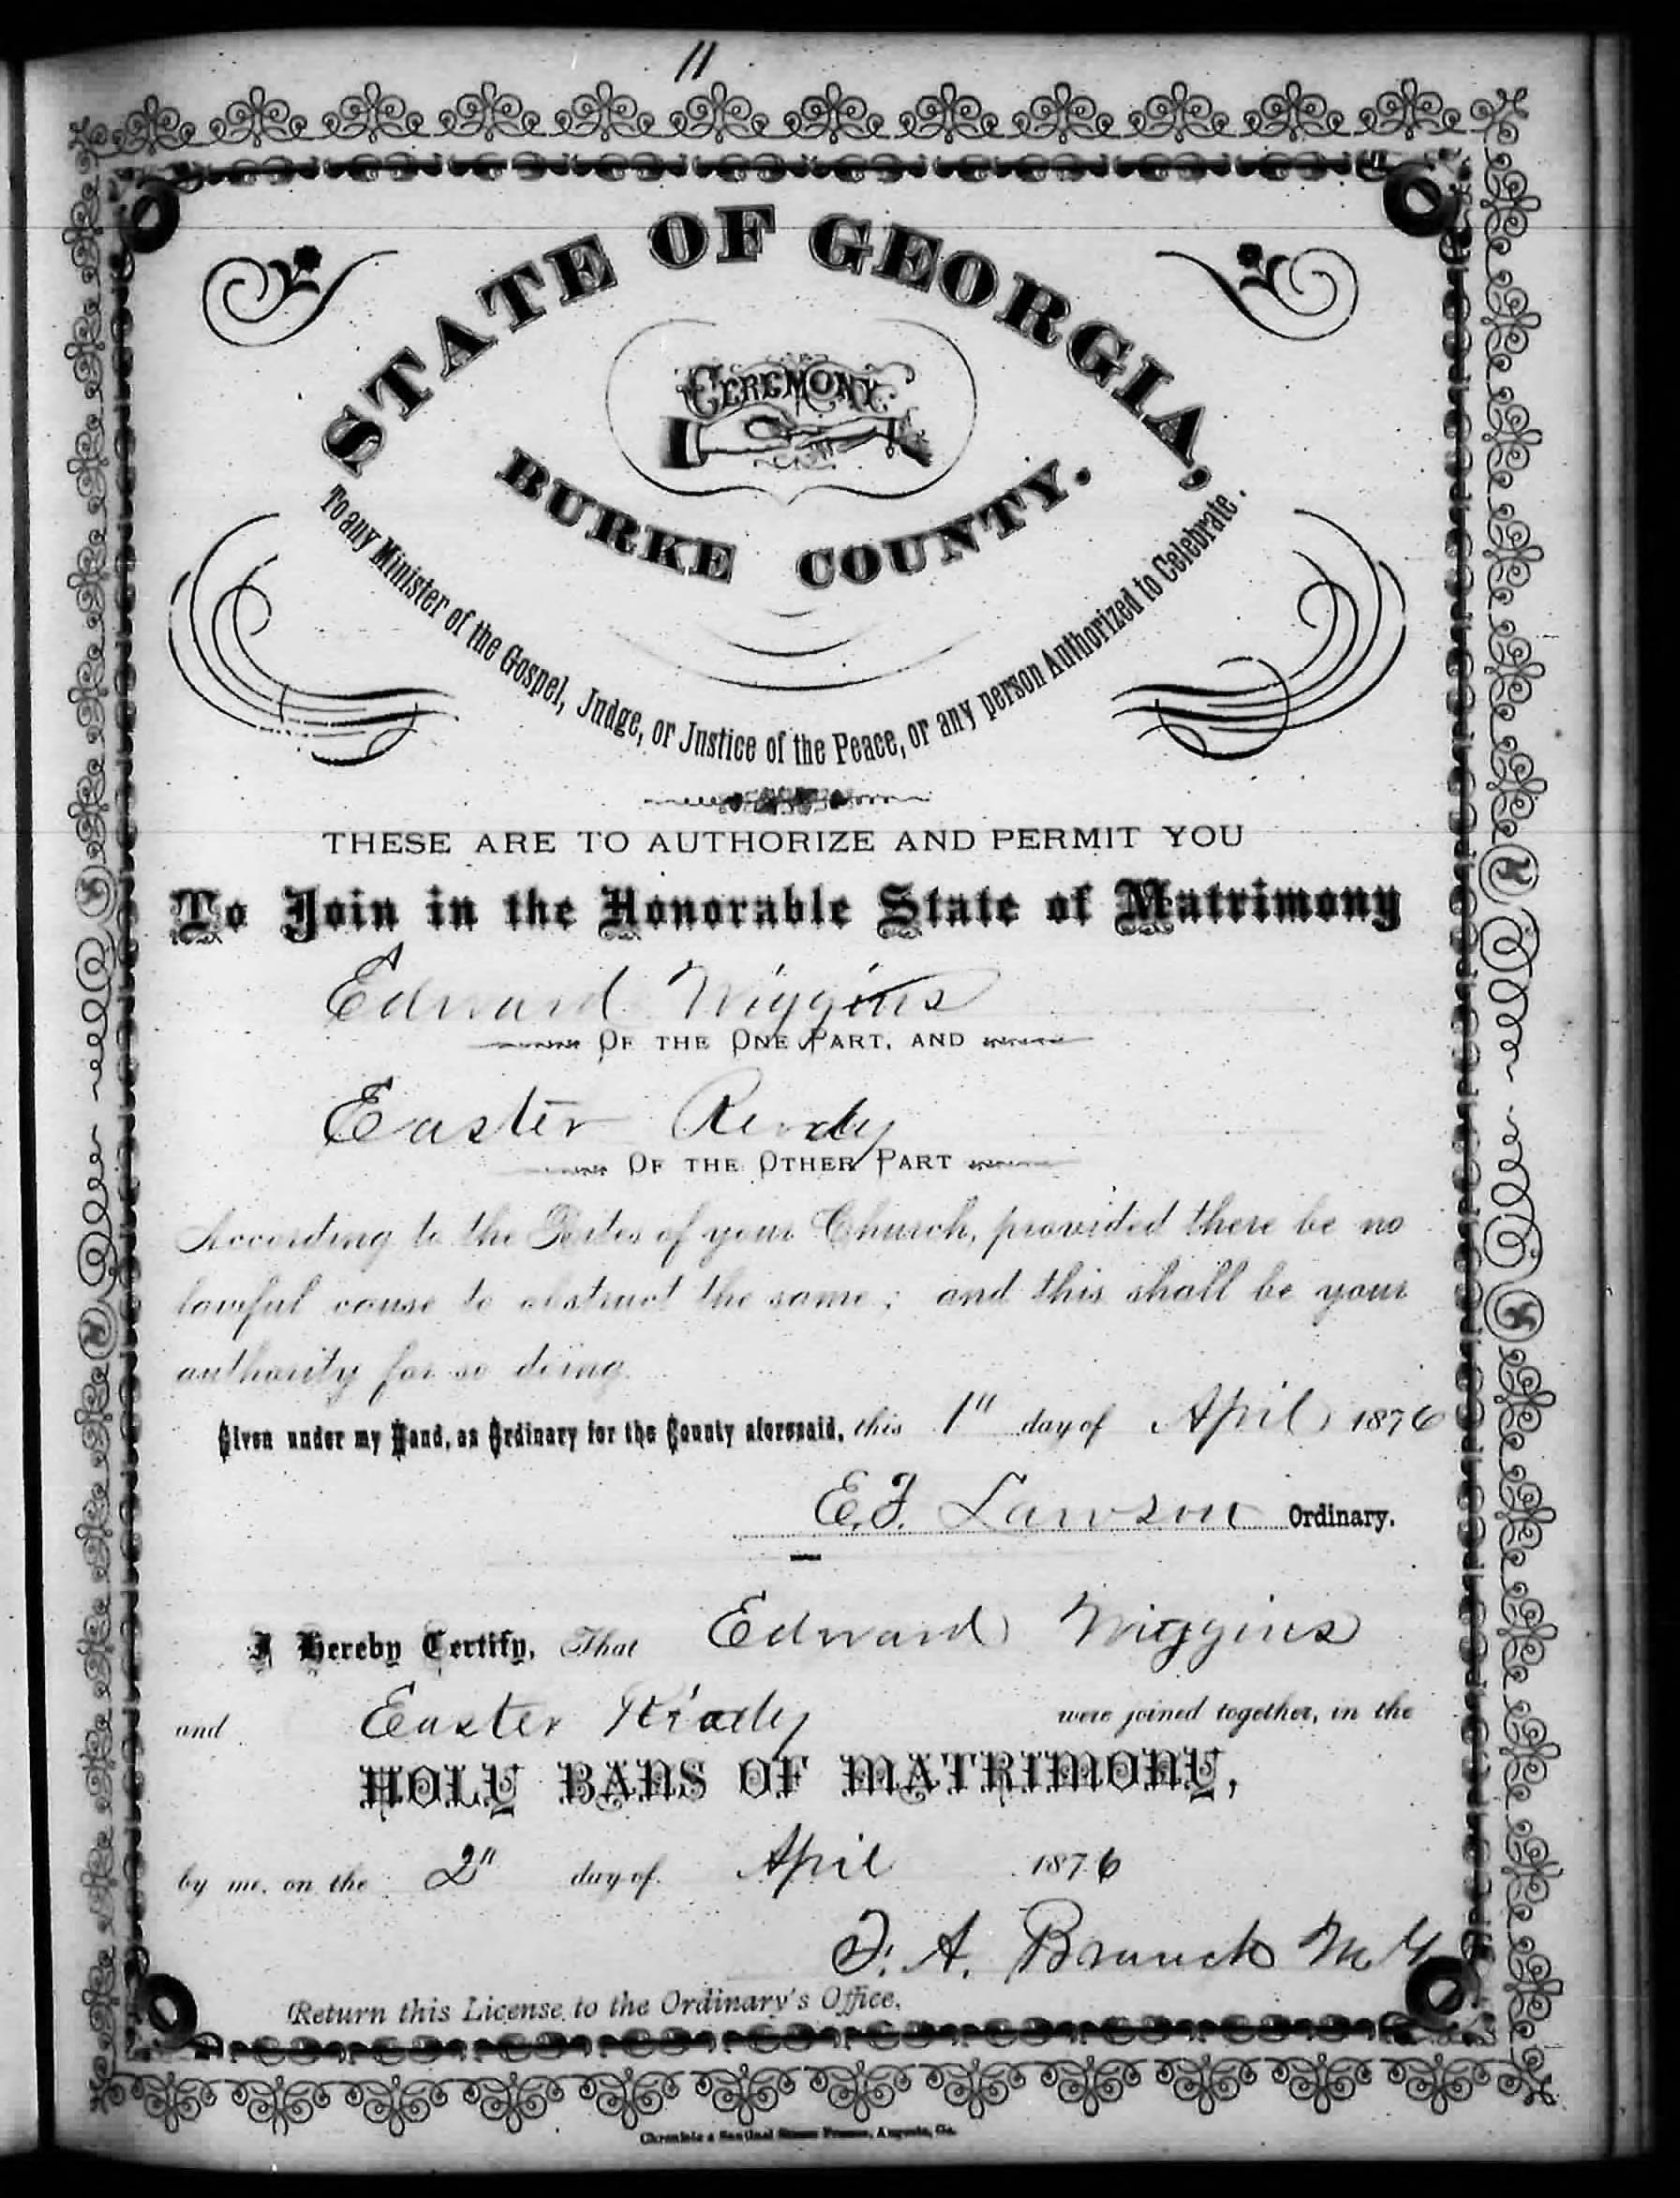 11
STATE OF GEORGIA,
CEREMONY
BURKE COUNTY.
To any Minister of the Gospel, Judge, or Justice of the Peace, or any person Authorized to Celebrate.
THESE ARE TO AUTHORIZE AND PERMIT YOU
To Join in the Honorable State of Matrimony
Edward Wiggins
OF THE ONE PART, AND
Easter Ready
OF THE OTHER PART
According to the Rites of your Church, provided there be no
lawful cause to obstruct the same; and this shall be your
authority for so doing.
Given under my Hand, as Ordinary for the County aforesaid, this 1" day of April 1876
E.F. Lawson Ordinary.
I Hereby Certify, That Edward Wiggins
and Easter Ready were joined together, in the
HOLY BANS OF MATRIMONY,
by me, on the 2" day of April 1876
A. Branch M G
Return this License to the Ordinary's Office.
Chronicle & Sentinel Steam Presses, Augusta, Ga.